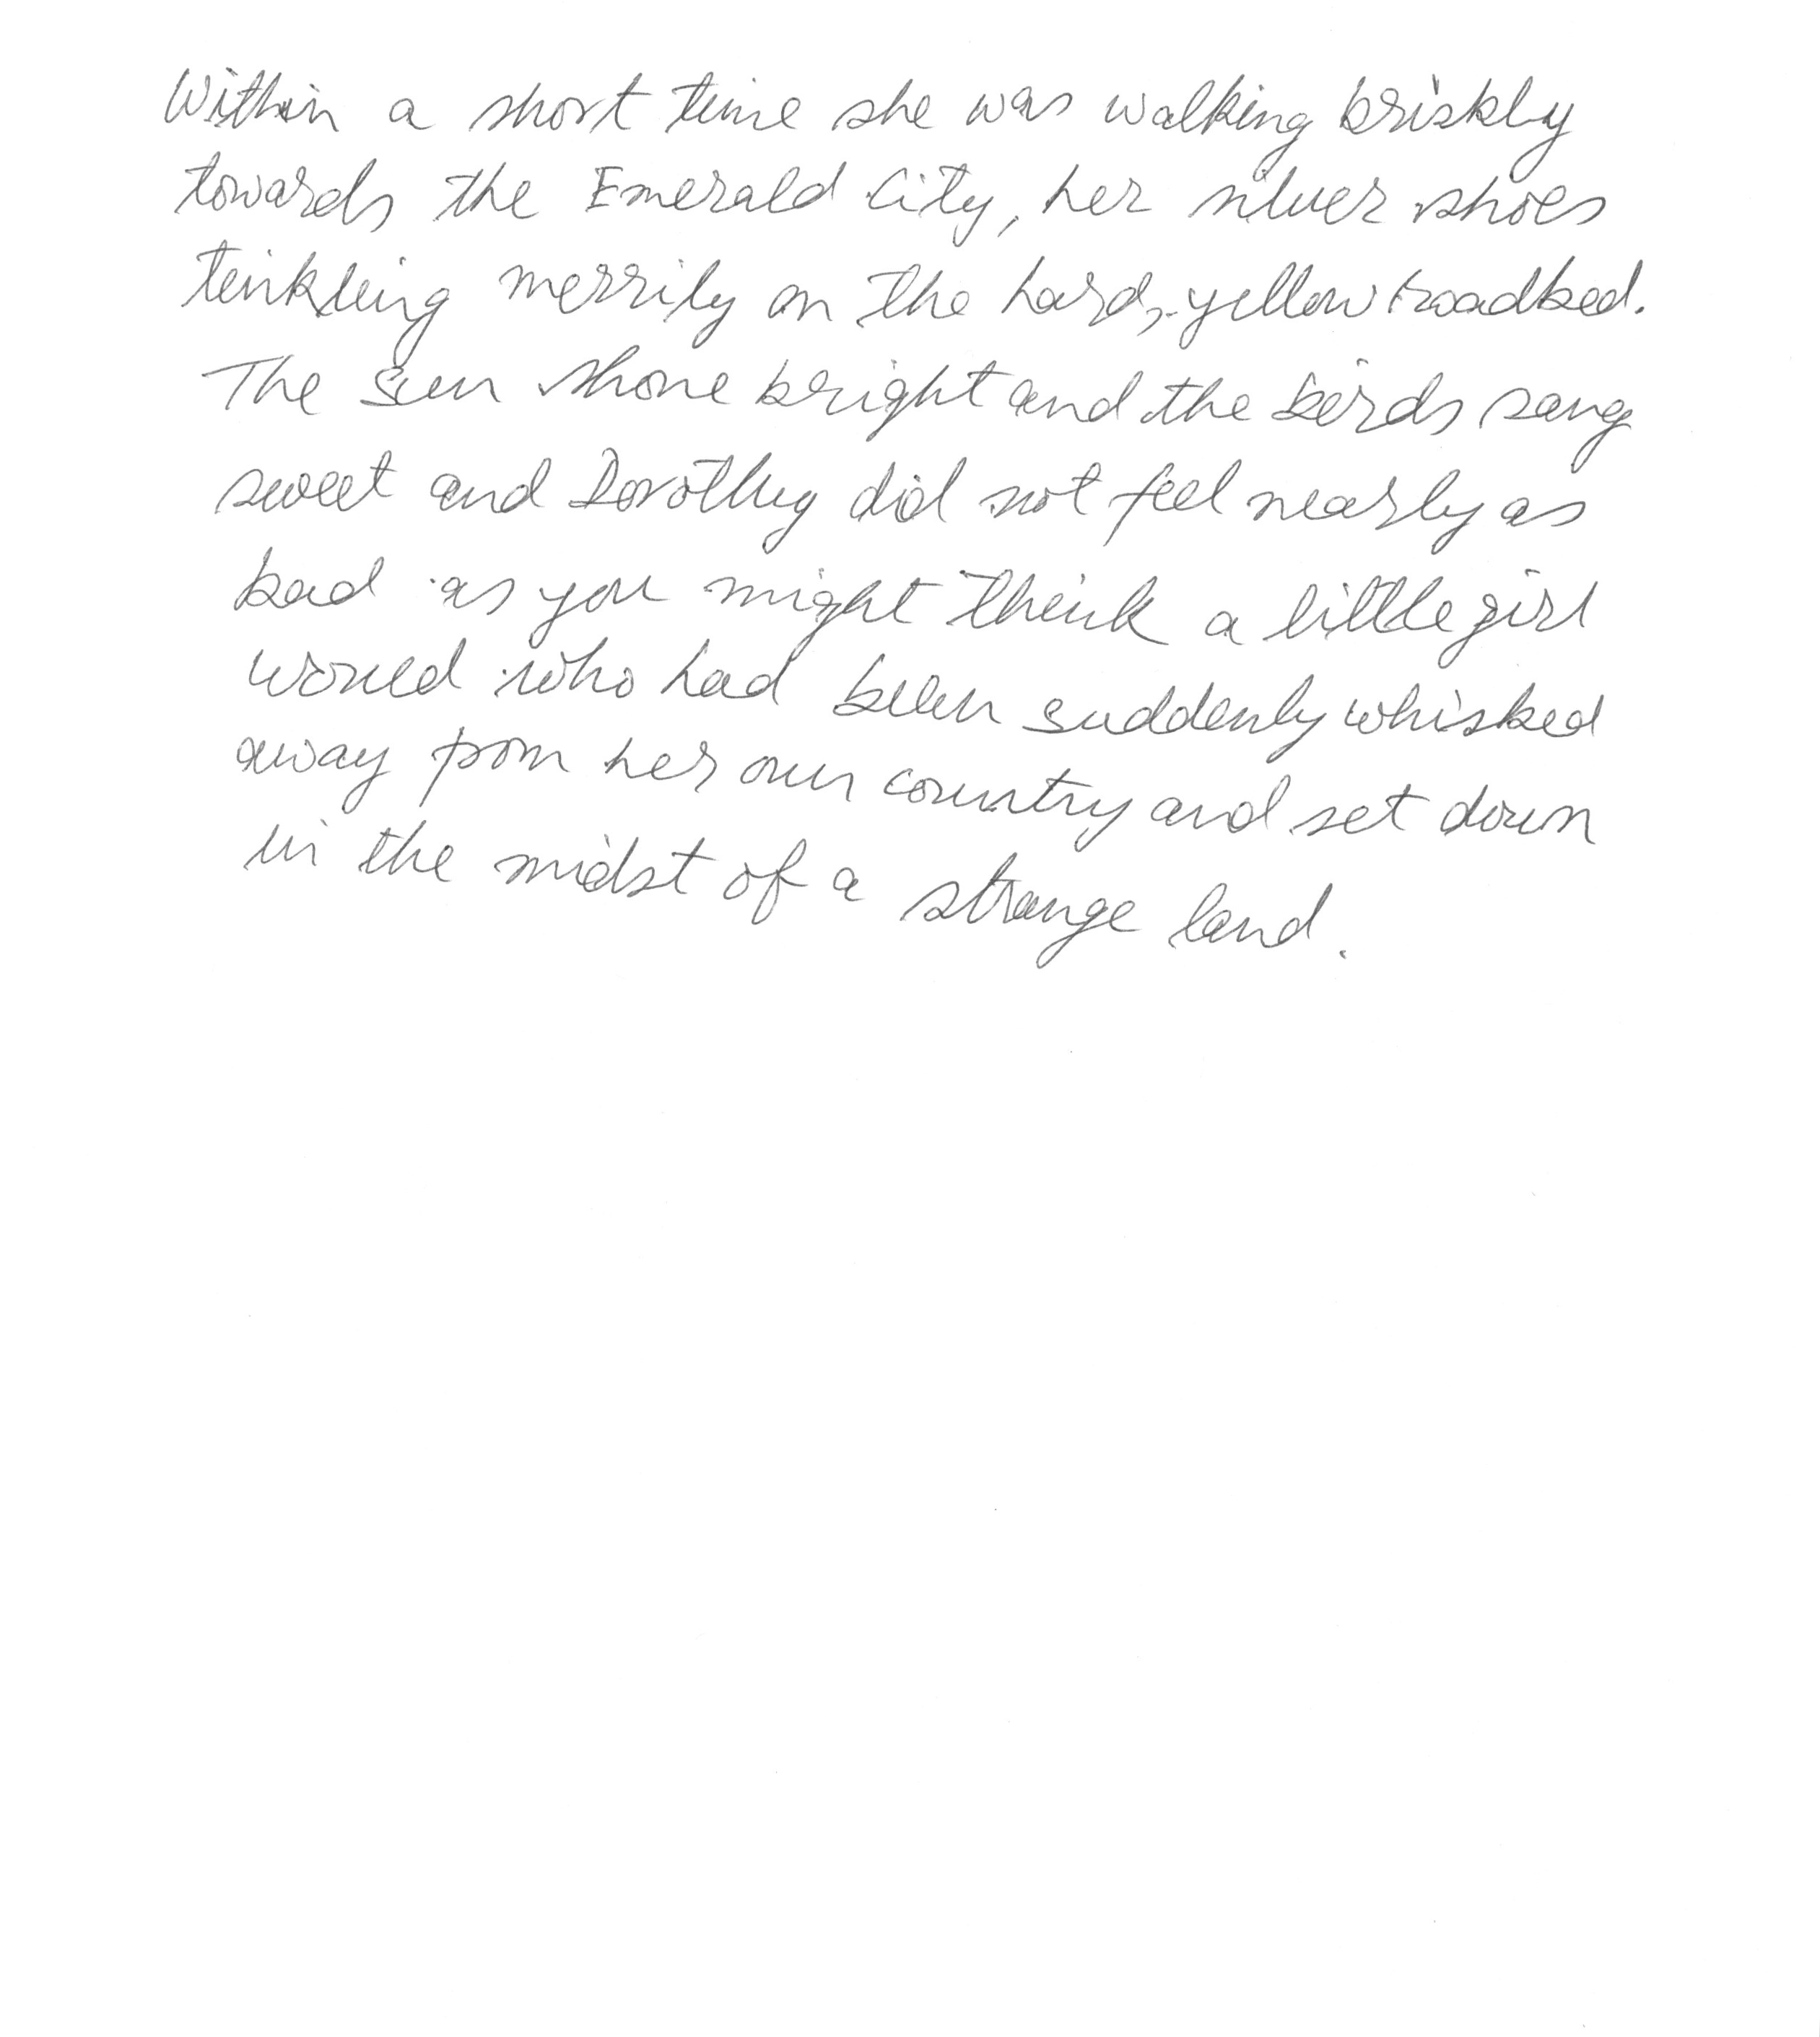 Within a short time she was walking briskly
towards the Emerald City, her silver shoes
tinkling merrily on the hard, yellow roadbed.
The sun shone bright and the birds sang
sweet and Dorothy did not feel nearly as
bad as you might think a little girl
would who had been suddenly whisked
away from her own country and set down
in the midst of a strange land.